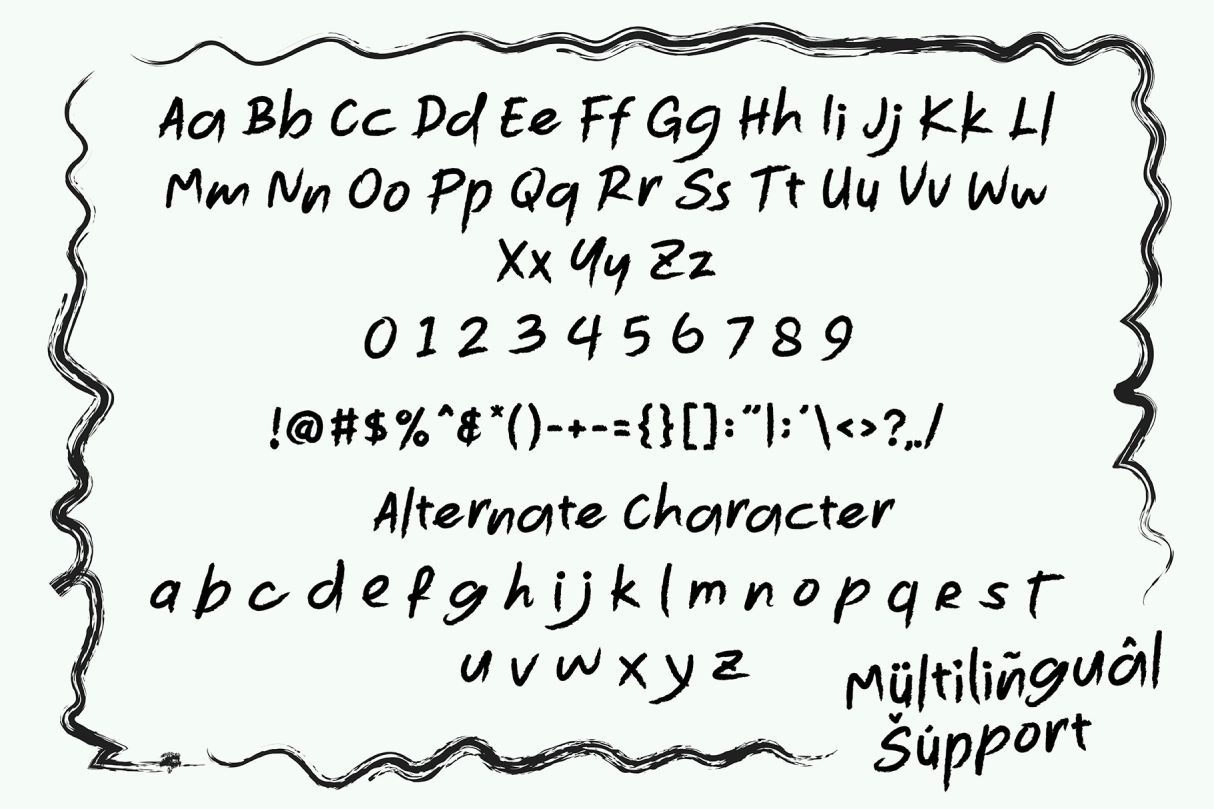 Aa Bb Cc Dd Ee Ff Gg Hh Ii Jj Kk Ll
Mm Nn Oo Pp Qq Rr Ss Tt Uu Vv Ww
Xx Yy Zz
0 1 2 3 4 5 6 7 8 9
!@#$%^&*()-+-={}[]:"|;'\<>?,./
Alternate Character
a b c d e f g h i j k l m n o p q e s t
u v w x y z
Mültiliñguâl
Šúpport